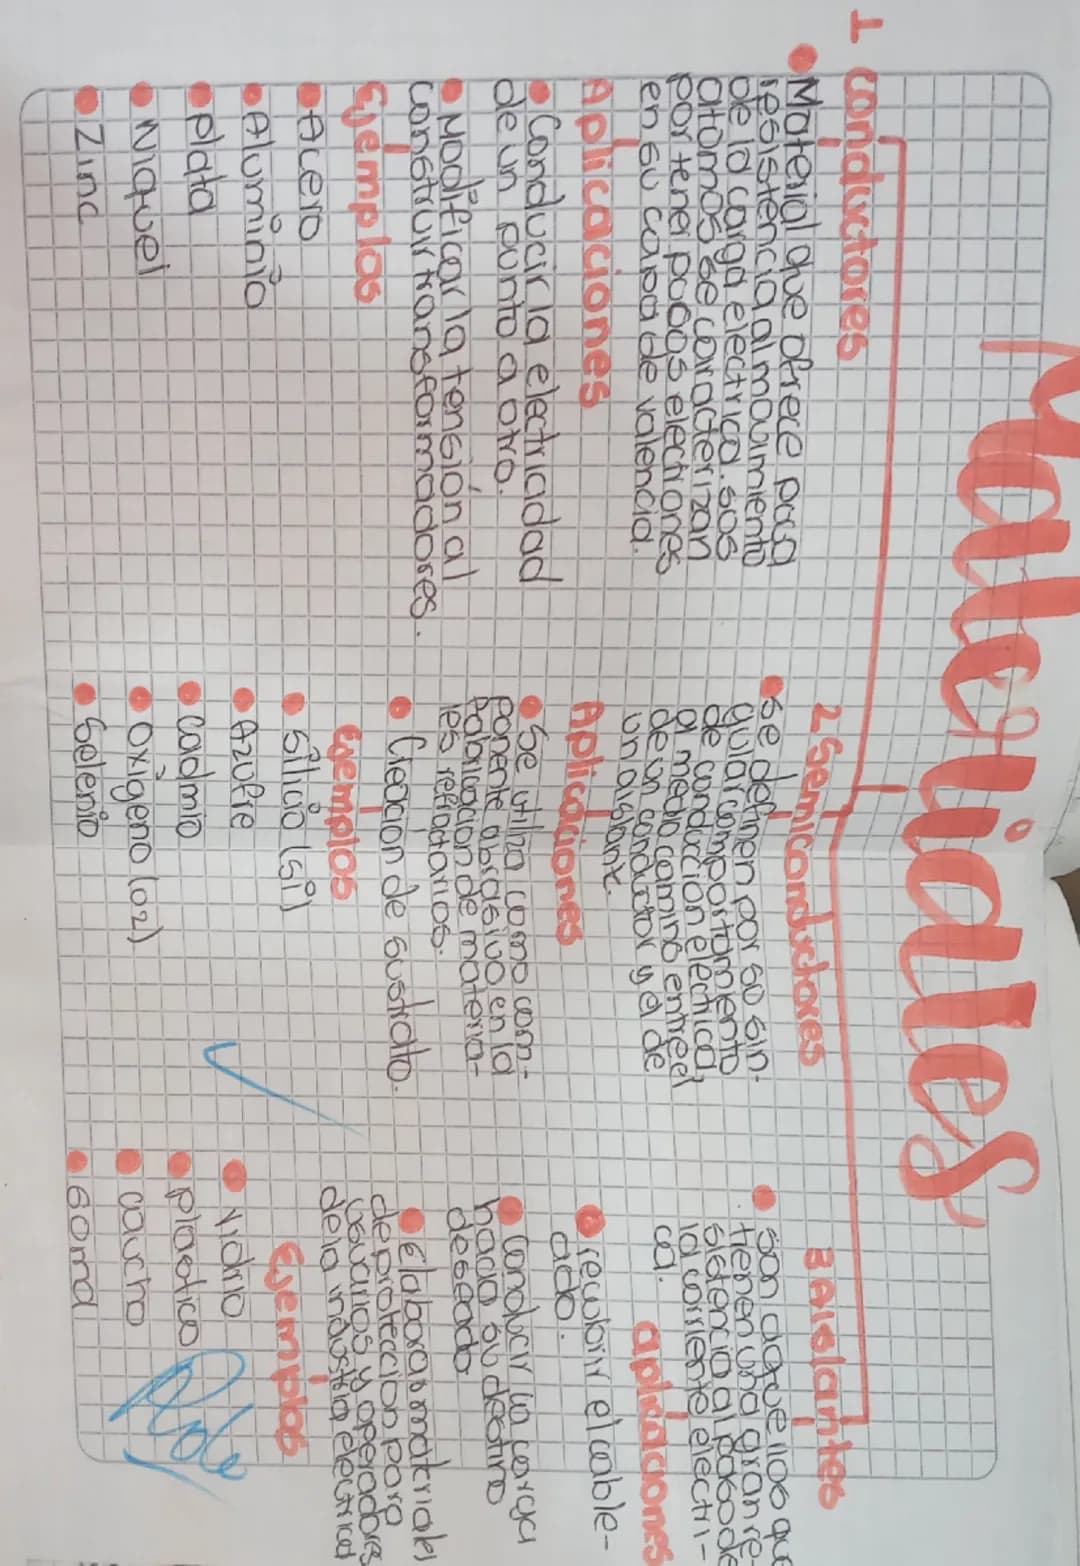 Materiales
1 conductores
• Material que ofrece poca
resistencia al movimiento
de la carga electrica. sos
atomos se caracterizan
por tener pocos electrones
en su capa de valencia.
Aplicaciones
• Conducir la electricidad
de un punto a otro.
• Modificar la tensión al
construir transformadores.
Ejemplos
• Acero
• Aluminio
• plata
• Niquel
• Zinc
2 Semiconductores
• se definen por so sin-
gular comportamiento
de conduccion electrica,
a medio camino entre el
de un conductor y el de
un aislante.
Aplicaciones
• Se utiliza como com-
ponente abrasivo en la
fabricacion de materia-
les refractarios.
• Creacion de sustrato.
Ejemplos
• Silicio (si)
• Azufre
• cadmio
• oxigeno (o2)
• Selenio
3 Aislantes
• son aquellos que
tienen una gran re-
sistencia al paso de
la corriente electri-
ca.
aplicaciones
• recubrir el cable-
ado.
• conducir la carga
hacia su destino
deseado
• Elaboran materiales
de proteccion para
usuarios y operadores
de la industria electrica
Ejemplos
• vidrio
• plastico
• caucho
• Goma